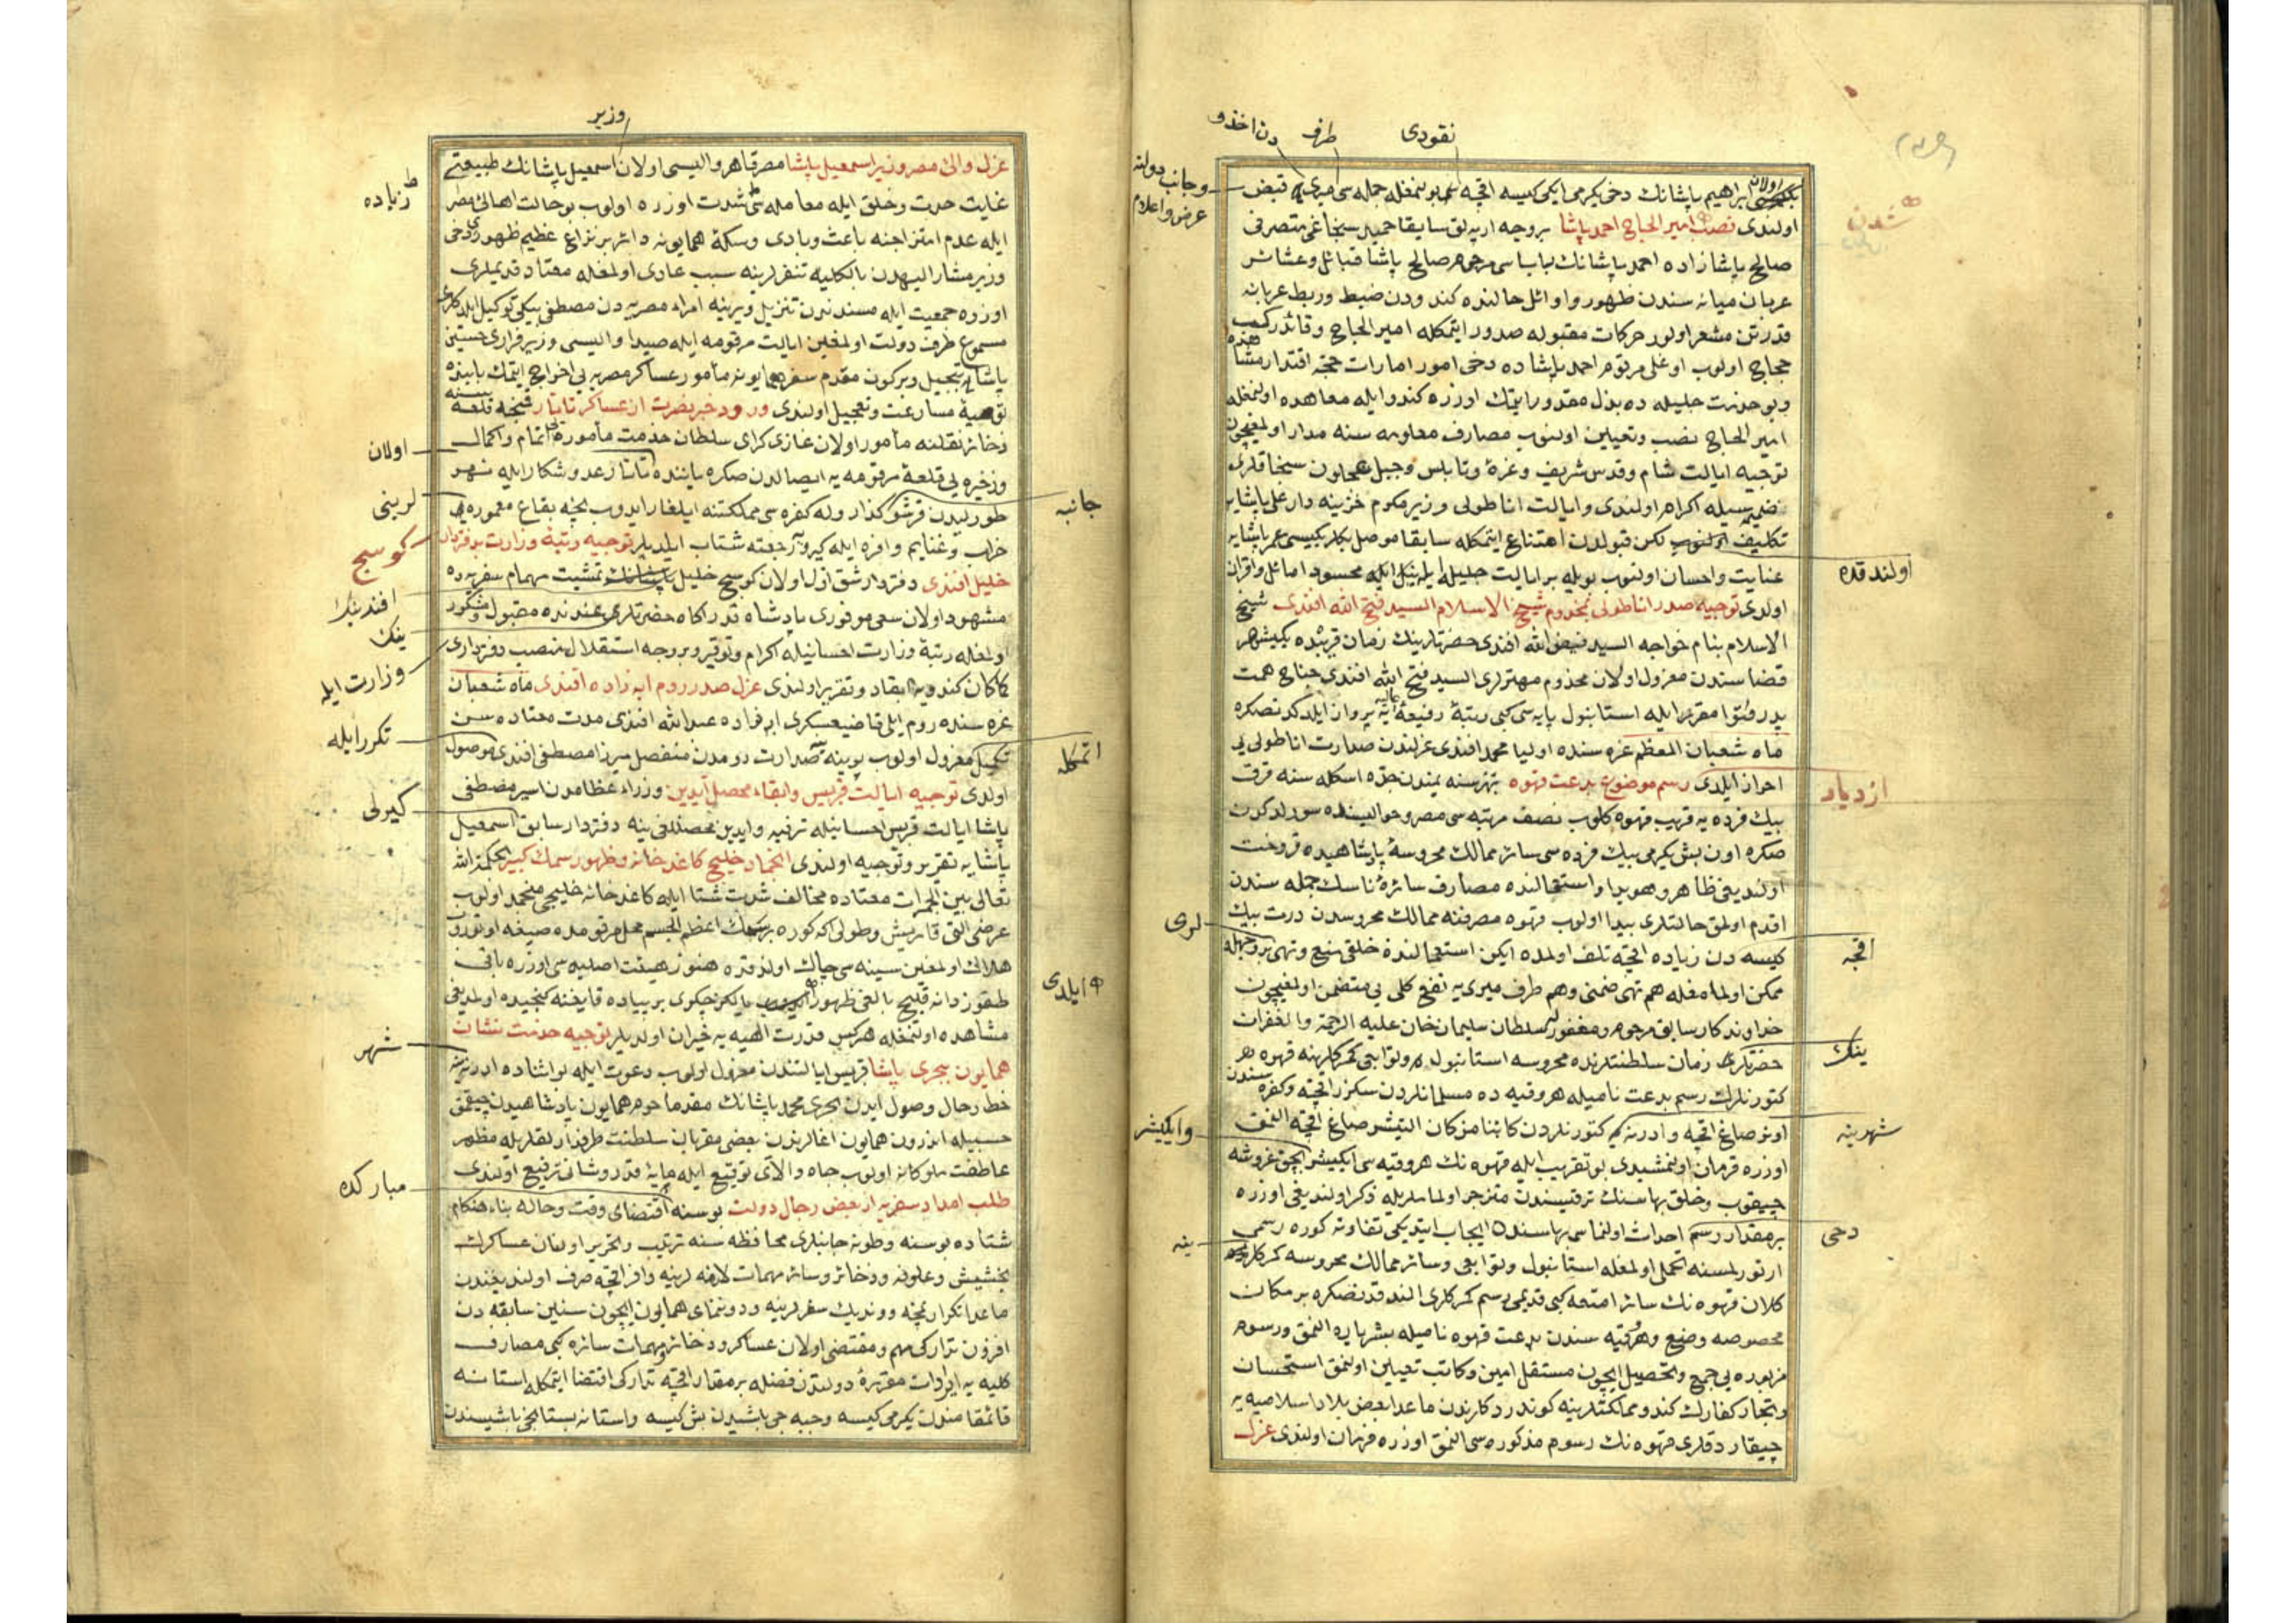 نقودی
طرف
دن اخذ و
اولان
ابراهیم پاشانك دخی یكرمی ایكی كیسه اقچه سی بولنمغله جمله سی میری قبض
وجانب دولته
عرض و اعلام
اولندی نصب امیر الحاج احمد پاشا بروجه ارپه لق سابقا حمید سنجاغی متصرفی
شدن
صالح پاشا زاده احمد پاشانك باباسی مرحوم صالح پاشا قبائل و عشائر
عربان میانه سندن ظهور و اوائل حالنده كندودن ضبط و ربط عربانه
قدرتن مشعر اولور حركات مقبوله صدور ایتمكله امیر الحاج و قائد ركب
حجاج اولوب اوغلی مرقوم احمد پاشاده دخی امور امارات حجه اقتدار مشاهده
و بو خدمت جلیله ده بذل مقدور ایتمك اوزره كندو ایله معاهده اولنمغله
امیر الحاج نصب و تعیین اولنوب مصارف معلومه سنه مدار اولمغیچون
توجیه ایالت شام و قدس شریف و غزه و نابلس و جبل عجلون سنجاقلری
ضمیمه سیله اكرام اولندی و ایالت اناطولی وزیر مكرم خزینه دار علی پاشایه
تكلیف اولنوب لكن قبولدن امتناع ایتمكله سابقا موصل بكلربكیسی عمر پاشایه
اولندقده
عنایت و احسان اولنوب بویله بر ایالت جلیله ایله محسود اماثل و اقران
اولدی توجیه صدر اناطولی بمخدوم شیخ الاسلام السید فتح الله افندی شیخ
الاسلام بنام خواجه السید فیض الله افندی حضرتلرینك زمان قریبده یكیشهر
قضاسندن معزول اولان مخدوم مهترلری السید فتح الله افندی جناح همت
پدر ایله استانبول پایه سی كبی رتبۀ رفیعۀ عالیه یه پرواز ایلدكدنصكره
ماه شعبان المعظم غره سنده اولیا محمد افندی عزلندن صدارت اناطولی یی
احراز ایلدی رسم موضوع بدعت قهوه بهر سنه یمندن جده اسكله سنه قرق
ازدیاد
بیك فرده یه قریب قهوه كلوب نصف مرتبه سی مصر و حوالیسنده سورلدكدن
صكره اون بش یكرمی بیك فرده سی سائر ممالك محروسۀ پادشاهیده فروخت
اولندیغی ظاهر و هویدا و استعمالنده مصارف سائرۀ ناسك جمله سندن
اقدم اولمق حالتلری پیدا اولوب قهوه مصرفنه ممالك محروسه دن درت بیك
لری
كیسه دن زیاده اقچه تلف اولمده ایكن استعمالندن خلقی منع و نهی بر وجهله
اقچه
ممكن اولمامغله هم نهی ضمنی و هم طرف میری یه نفع كلی یی متضمن اولمغیچون
خداوندكار سابق مرحوم و مغفور له سلطان سلیمان خان علیه الرحمة و الغفران
حضرتلری زمان سلطنتلرنده محروسه استانبول و توابعی كمركلرینه قهوه هر
ینك
كتورنلرك رسم بدعت نامیله هر وقیه ده مسلمانلردن سكزر اقچه و كفره سندن
اونر صاغ اقچه و ادرنه یه كتورنلردن كائنا من كان التیشر صاغ اقچه النمق
شهرینه
وایكیشر
اوزره فرمان اولنمشیدی بو تقریب ایله قهوه نك هر وقیه سی ایكیشر بچق غروشه
چیقوب و خلق بهاسنك ترقیسندن متزجر اولماملریله ذكر اولندیغی اوزره
بر مقدار رسم احداث اولنماسی بهاسنده ایجاب ایتدیكی تفاوته كوره رسمی
دخی
ینه
ارتورلمسنه تحملی اولمغله استانبول و توابعی و سائر ممالك محروسه كمركلرینه
كلان قهوه نك سائر امتعه كبی قدیمی رسم كمركلری الندقدنصكره بر مكان
مخصوصه وضع و هر وقیه سندن بدعت قهوه نامیله بشر پاره النمق و رسوم
مزبوره یی جمع و تحصیل ایچون مستقل امین و كاتب تعیین اولنمق استحسان
و تجار كفارك كندو مملكتلرینه كوندردكلرندن ماعدا بعض بلاد اسلامیه یه
چیقاردقلری قهوه نك رسوم مذكوره سی النمق اوزره فرمان اولندی عزل
وزیر
عزل والئ مصر وزیر اسمعیل پاشا مصر قاهره والیسی اولان اسمعیل پاشانك طبیعتی
زیاده
غایت حدت و خلق ایله معامله سی شدت اوزره اولوب بو حالت اهالئ مصر
ایله عدم امتزاجنه باعث و بادی و سكۀ همایونه دائر بر نزاع عظیم ظهوری دخی
وزیر مشار الیهدن بالكلیه تنفرلرینه سبب عادی اولمغله معتاد قدیملری
اوزره جمعیت ایله مسندندن تنزیل و یرینه امراء مصریه دن مصطفی بیكی توكیل ایلدكلری
مسموع طرف دولت اولمغین ایالت مرقومه ایله صیدا والیسی وزیر فراری حسین
پاشایه تبجیل و بركون مقدم سفر همایونه مأمور عساكر مصریه یی اخراج ایتمك بابنده
توصیۀ مسارعت و تعجیل اولندی ورود خبر نصرت از عساكر تاتار قمنچه قلعه سنه
ذخائر نقلنه مأمور اولان غازی كرای سلطان خدمت مأموره یی اتمام و اكمال
اولان
و ذخیره یی قلعۀ مرقومه یه ایصالدن صكره یاننده تاتار عدو شكار ایله نهر
طورلیدن قرشو كذار و له كفره سی مملكتنه ایلغار ایدوب نیچه بقاع معموره یی
لرینی
جانبه
خراب و غنایم وافره ایله كیرو رجعته شتاب ایلدیلر توجیه رتبۀ وزارت بدفتردار
كوسج
خلیل افندی دفتردار شق اول اولان كوسج خلیل پاشانك تمشیت مهام سفریه ده
افندینك
مشهود اولان سعی موفوری پادشاه قدر اكاه حضرتلری عندنده مقبول و مشكور
ینك
اولمغله رتبۀ وزارت احسانیله اكرام و توقیر و بر وجه استقلال منصب دفترداری
وزارت ایله
كاكان كندویه ابقاد و تقریر اولندی عزل صدر روم ابه زاده افندی ماه شعبان
غره سنده روم ایلی قاضیعسكری ابه زاده عبد الله افندی مدت معتاده سن
تكمیل معزول اولوب یرینه صدارت رومدن منفصل میرزا مصطفی افندی موصول
تكرر ایله
اتمكله
اولدی توجیه ایالت قبریس و ابقاء محصل آیدین وزراء عظامدن اسیر مصطفی
كیرلی
پاشا ایالت قبریس احسانیله ترفیه و ایدین محصللغی ینه دفتردار سابق اسمعیل
پاشایه تقریر و توجیه اولندی انجماد خلیج كاغد خانه و ظهور سمك كبیر بحكمة الله
تعالی بین الجمرات معتاده مخالف شدت شتا ایله كاغد خانه خلیجی منجمد اولوب
عرضی التی قاریش و طولی اكه كوره بر سمك اعظم الجسم محل مرقومده صیغه اوتوروب
هلاك اولمغین سینه سی چاك اولندقده هنوز هیئت اصلیه سی اوزره باقی
طقوز دانه قلیچ بالغی ظهور ایدوب یالكز جكری بر پیاده قایغنه كنجیده اولمدیغی
ایلدی
مشاهده اولنمغله هركس قدرت الهیه یه حیران اولدیلر توجیه خدمت نشان
همایون ببحری پاشا قبریس ایالتندن معزول اولوب دعوت ایله بو اثناده ادرنه یه
شهر
حط رحال وصول ایدن بحری محمد پاشانك مقدما حرم همایون پادشاهیدن چیقمق
حسبیله اندرون همایون اغالرندن بعضی مقربان سلطنت طرفدارلقلریله مظهر
عاطفت ملوكانه اولوب جاه والای توقیع ایله پایۀ قدر و شانی ترفیع اولندی
مباركده
طلب امداد سفریه از بعض رجال دولت بو سنه اقتضای وقت و حاله بناء هنكام
شتاده بوسنه و طونه جانبلری محافظه سنه ترتیب و تحریر اولنان عساكرك
بخشیش و علوفه و ذخائر و سائر مهمات لازمه لرینه وافر اقچه صرف اولندیغندن
ماعدا تكرار نمچه و وندیك سفرلرینه و دوننمای همایون ایچون سنین سابقه دن
افزون تداركی مهم و مقتضی اولان عساكر و ذخائر و مهمات سائره كبی مصارف
كلیه یه ایرادات مقررۀ دولتدن فضله بر مقدار اقچه تداركی اقتضا ایتمكله استانه
قائمقامندن یكرمی كیسه و جبه جی باشیدن بش كیسه و استانه بستانجی باشیسندن